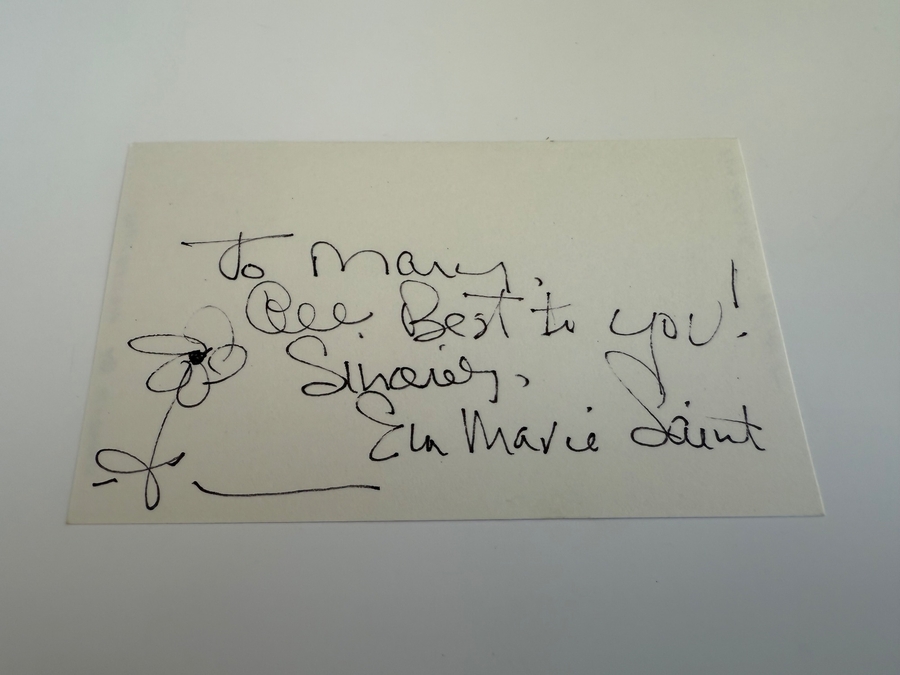 To Mary,
All Best to you!
Sincerely,
Eva Marie Saint